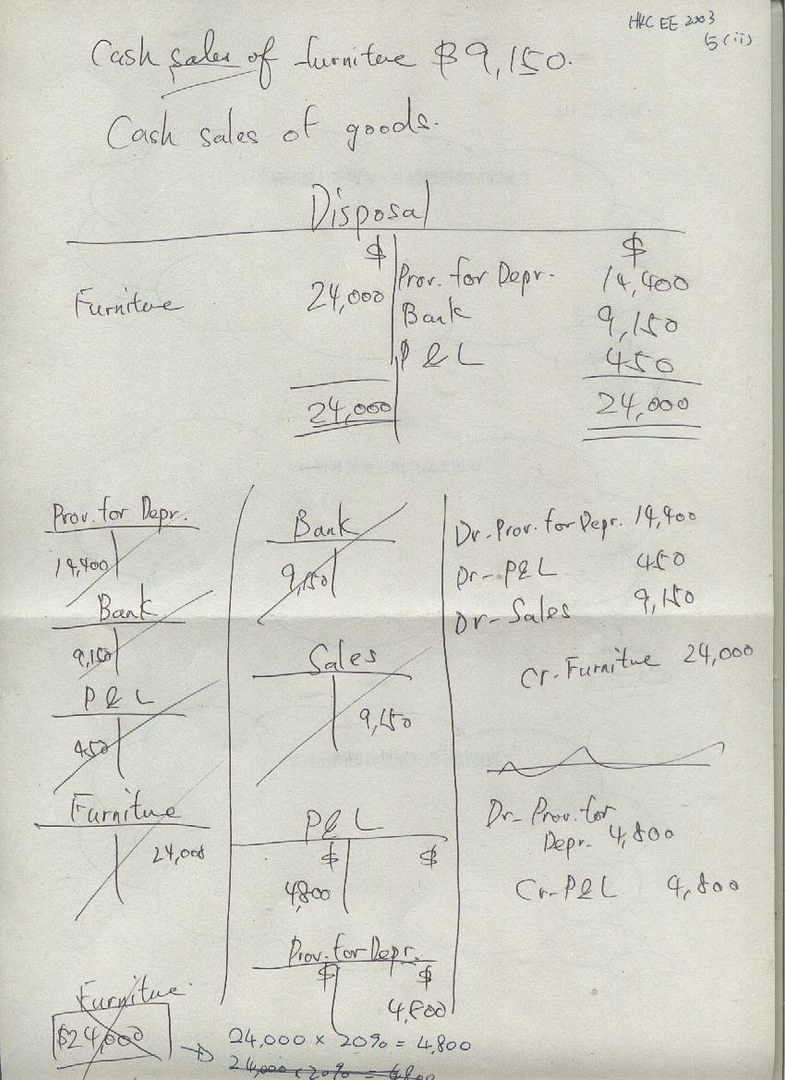 HKCEE 2003
5(ii)
Cash sales of furniture $9,150.
Cash sales of goods.
Disposal
$ $
Furniture 24,000 Prov. for Depr. 14,400
Bank 9,150
P & L 450
24,000 24,000
Prov. for Depr.
14,400
Bank
9,150
P & L
450
Furniture
24,000
Furniture
$24,000
Bank
9,150
Sales
9,150
P & L
$ $
4,800
Prov. for Depr.
$ $
4,800
24,000 × 20% = 4,800
24,000 × 20% = 4800
Dr-Prov. for Depr. 14,400
Dr-P&L 450
Dr-Sales 9,150
Cr-Furniture 24,000
Dr-Prov. for
Depr. 4,800
Cr-P&L 4,800